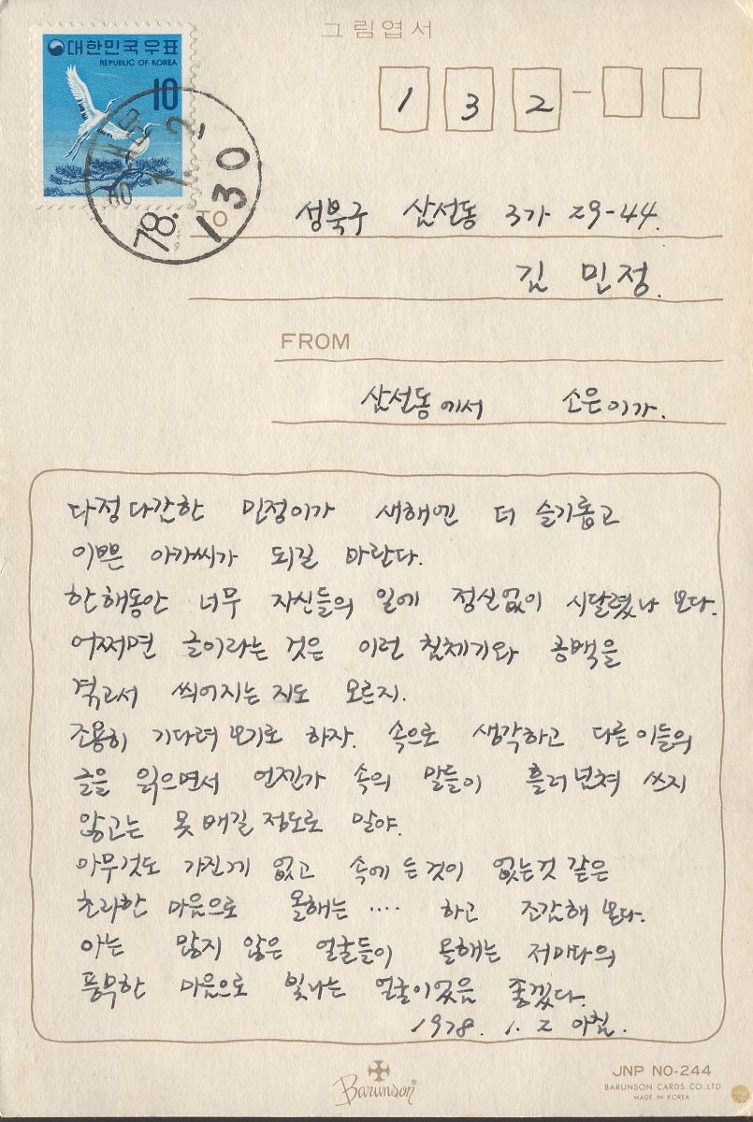 그림엽서
대한민국우표
REPUBLIC OF KOREA
10
78. 1. 2
130
1 3 2 -
TO
성북구 삼선동 3가 29-44.
김 민정.
FROM
삼선동에서 소은이가.
다정다감한 민정이가 새해엔 더 슬기롭고
이쁜 아가씨가 되길 바란다.
한해동안 너무 자신들의 일에 정신없이 시달렸나 보다.
어쩌면 글이라는 것은 이런 침체기와 공백을
겪고서 씌어지는 지도 모르지.
조용히 기다려 보기로 하자. 속으로 생각하고 다른 이들의
글을 읽으면서 언젠가 속의 말들이 흘러 넘쳐 쓰지
않고는 못 배길 정도로 말야.
아무것도 가진게 없고 속에 든것이 없는것 같은
초라한 마음으로 올해는 .... 하고 조감해 본다.
아는 많지 않은 얼굴들이 올해는 저마다의
풍부한 마음으로 빛나는 얼굴이었음 좋겠다.
1978. 1. 2 아침.
Barunson
JNP NO-244
BARUNSON CARDS CO.,LTD
MADE IN KOREA